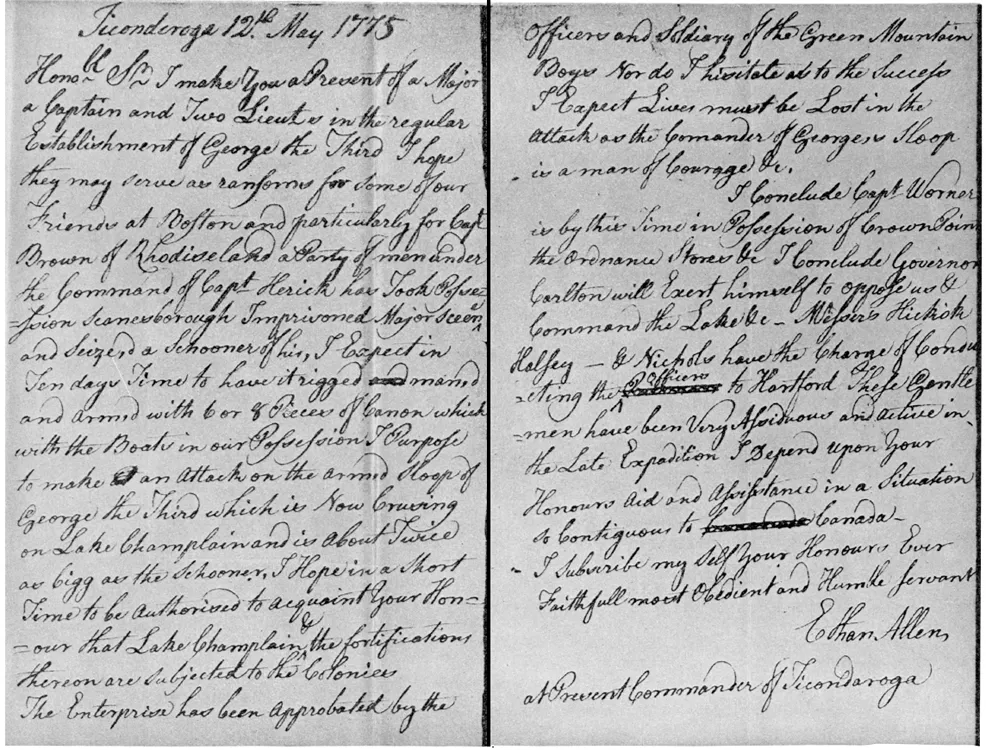 Ticonderoga 12th May 1775
Honold Sr I make You a Present of a Major
a Captain and Two Lieuts in the regular
Establishment of George the Third I hope
they may serve as ransoms for some of our
Friends at Boston and particularly for Capt
Brown of Rhodiseland a Party of men under
the Command of Capt Herick has Took Posse=
=ssion Scanesborough Imprisoned Major Sceen
and Seized a Schooner of his, I Expect in
Ten days Time to have it rigged and mand
and armd with 6 or 8 Pieces of Canon which
with the Boats in our Possession I Purpose
to make an Attack on the armd Sloop of
George the Third which is Now Crusing
on Lake Champlain and is about Twice
as bigg as the Schooner, I Hope in a Short
Time to be authorised to acquaint Your Hon=
=our that Lake Champlain & the fortifications
thereon are subjected to the Colonies
The Enterprise has been approbated by the
Officers and Soldiary of the Green Mountain
Boys Nor do I hisitate as to the Success
I Expect Lives must be Lost in the
Attack as the Comander of Georges Sloop
is a man of Courage &c.
I Conclude Capt Worner
is by this Time in Possession of Crown Point
the Ordnance Stores &c I Conclude Governor
Carlton will Exert himself to oppose us &
Command the Lake &c - Messirs Hickok
Halsey - & Nichols have the Charge of Condu
=cting the Officers to Hartford These Gentle
=men have been Very Assiduous and active in
the Late Expadition I Depend upon Your
Honours Aid and Assistance in a Situation
so Contiguous to Canada -
I Subscribe my Self Your Honours Ever
Faithfull most Obedient and Humble Servant
Ethan Allen
at Present Commander of Ticondaroga